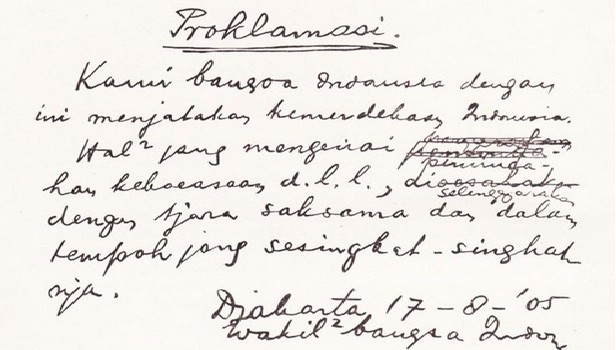 Proklamasi.
Kami bangsa Indonesia dengan
ini menjatakan kemerdekaan Indonesia.
Hal² jang mengenai peminda-
han kekoeasaan d.l.l., diselenggarakan
dengan tjara saksama dan dalam
tempoh jang sesingkat-singkat
nja.
Djakarta 17 - 8 - '05
Wakil² bangsa Indon